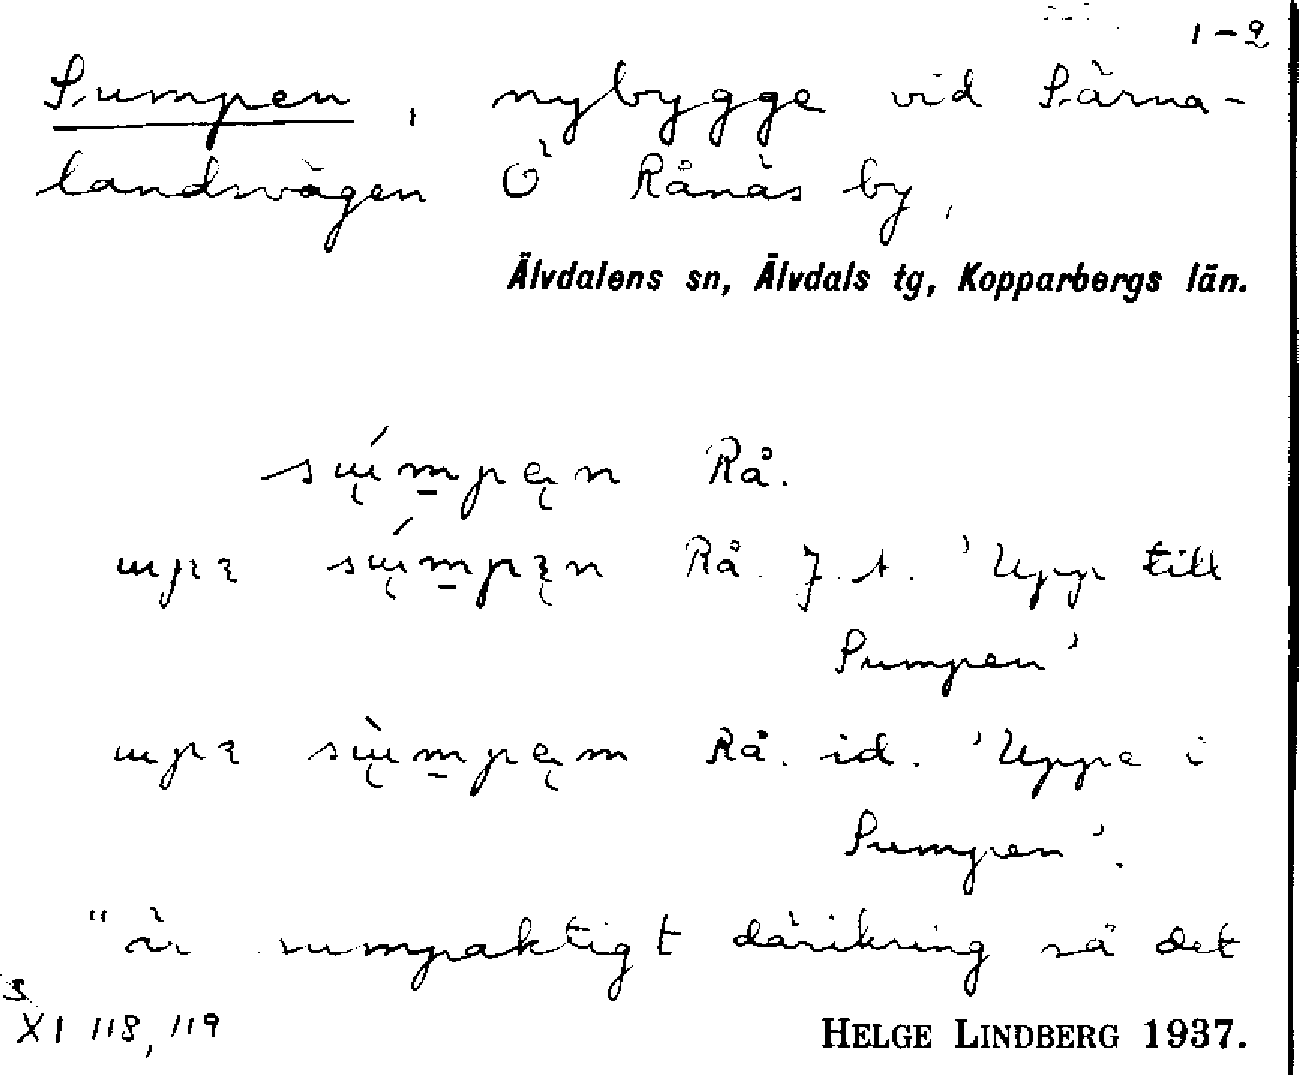 1-2
Sumpen, nybygge vid Särna-
landsvägen Ö Rånäs by,
Älvdalens sn, Älvdals tg, Kopparbergs län.
sų́m̱pęn Rå.
upɛ sų́m̱pɛ̨n Rå. J. t. 'Upp till
Sumpen'
upɛ sų̀m̱pęm Rå. id. 'Uppe i
Sumpen'.
"är sumpaktigt därikring så det
XI 118, 119
HELGE LINDBERG 1937.